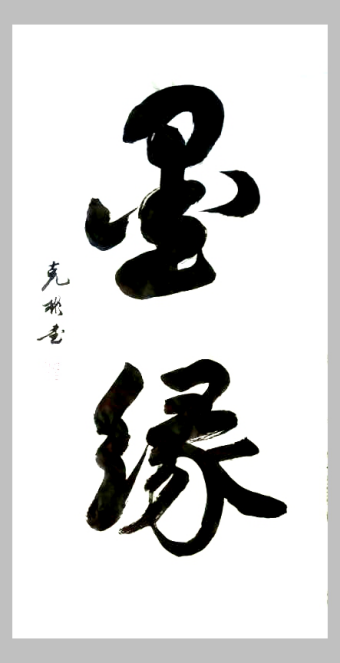 墨缘
克彬书